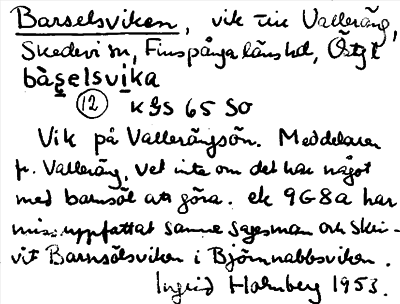 Barselsviken, vik till Valleräng,
Skedevi sn, Finspånga länshd, Östgt
bàselsvika
12 KGS 65 SO
Vik på Vallerängsön. Meddelaren
fr. Valleräng, vet inte om det har något
med barnsöl att göra. ek 9G8a har
missuppfattat samme sagesman och skri-
vit Barnsölsviken i Björnnabbsviken.
Ingrid Holmberg 1953.